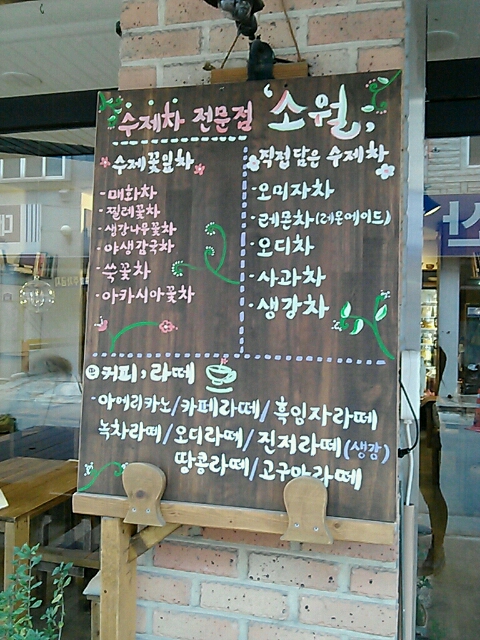 수제차 전문점 '소월,
수제꽃잎차
· 매화차
· 찔레꽃차
· 생강나무꽃차
· 야생감국차
· 쑥꽃차
· 아카시아꽃차
직접담은 수제차
· 오미자차
· 레몬차(레몬에이드)
· 오디차
· 사과차
· 생강차
커피, 라떼
- 아메리카노/카페라떼/흑임자라떼
녹차라떼/오디라떼/진저라떼(생강)
땅콩라떼/고구마라떼